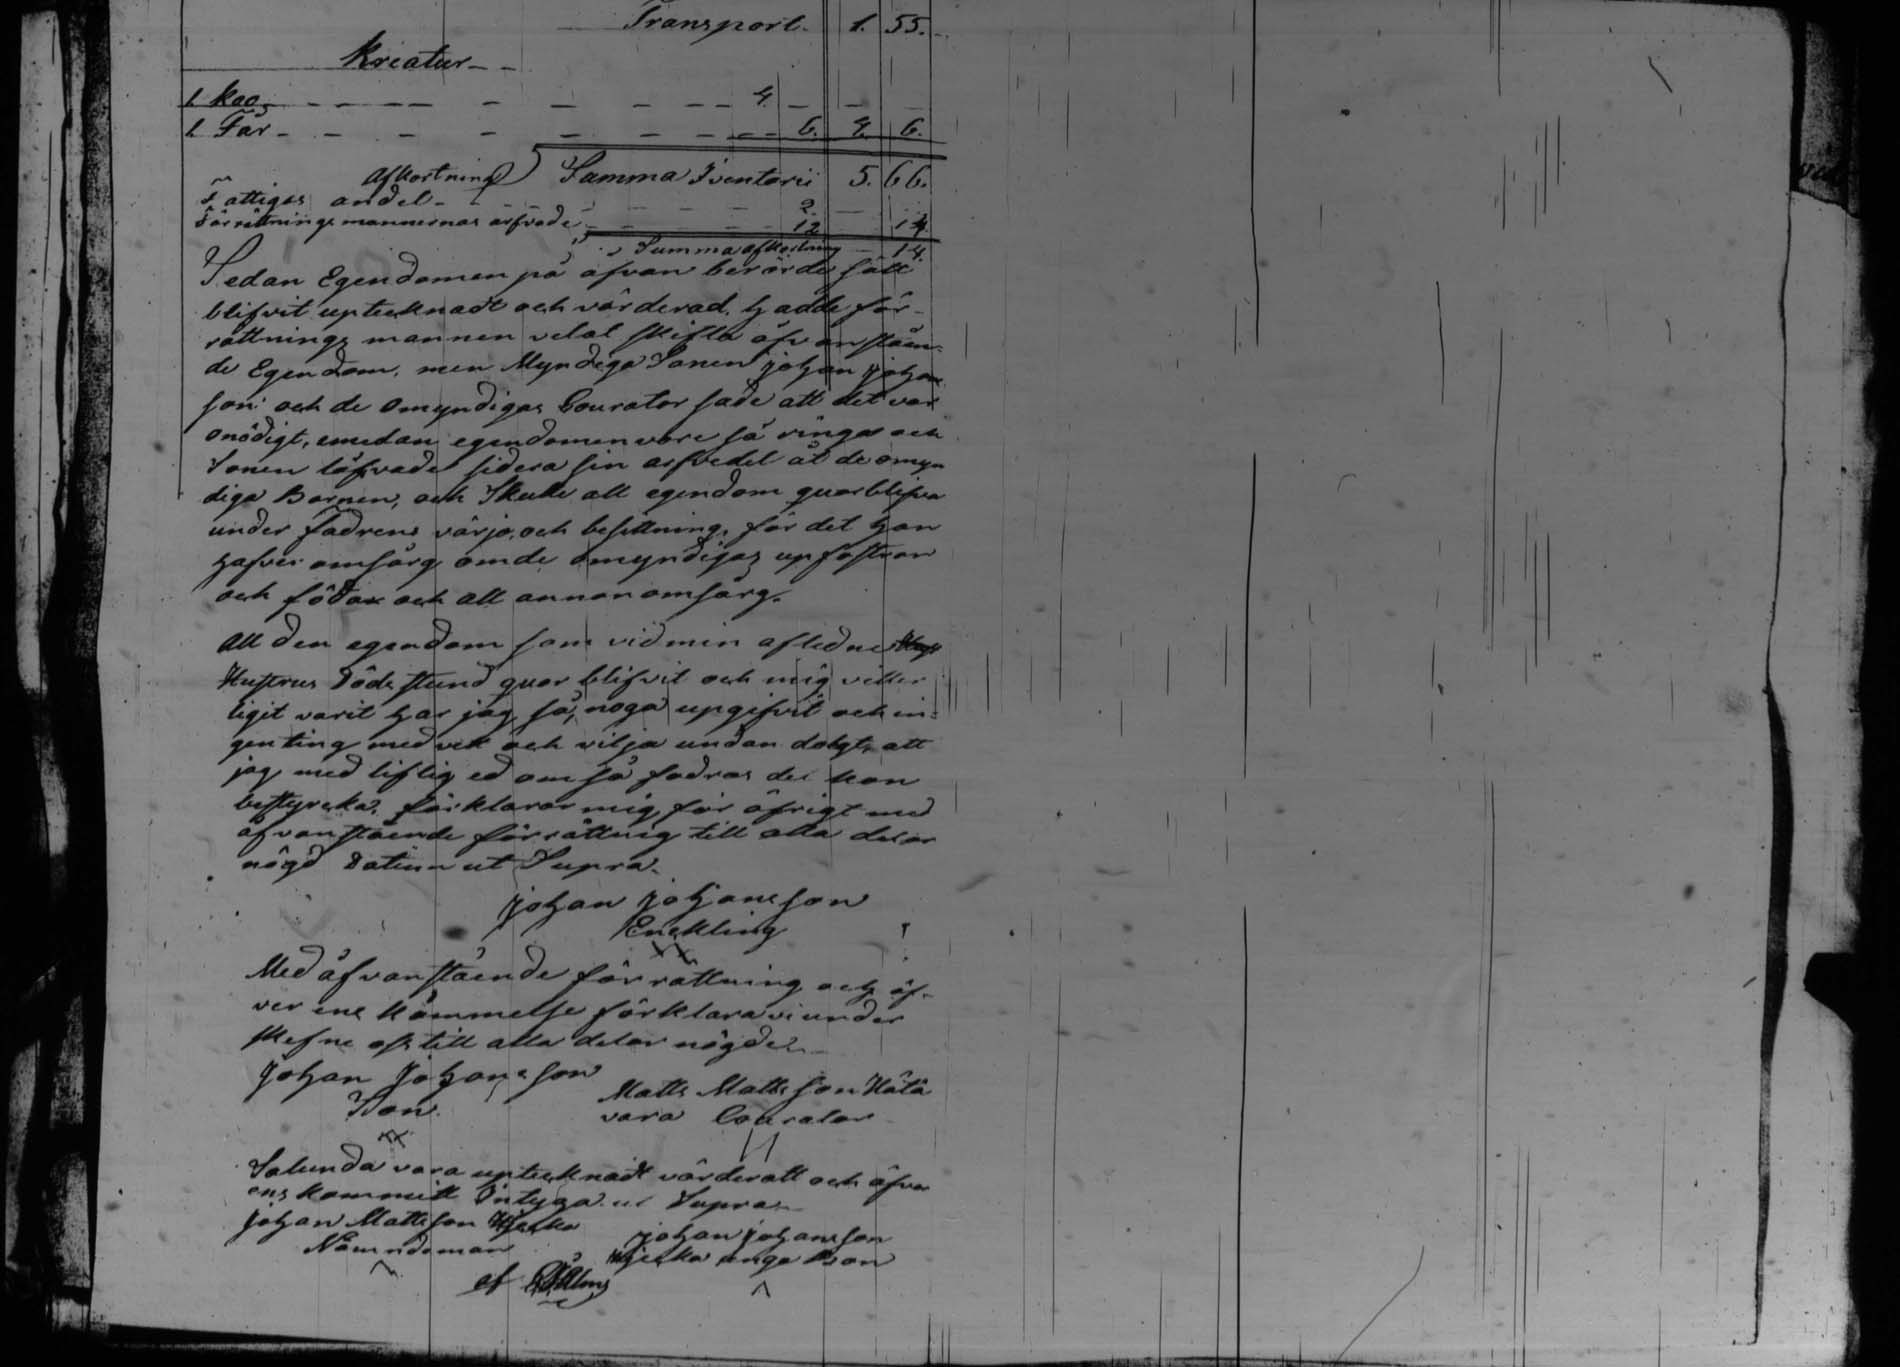 Transport. 1. 55.
Kreatur
1 Koo 4.
1 Får 6. 4. 6.
Afkortning Summa Iventarii 5. 66.
Fattigas andel 2.
Förrättnings mannernas arfvode 12 14.
Summa afkortning 14.
Sedan Egendomen på åfvan berörde sätt
blifvit uptecknadt och värderad, hadde för-
rättnings mannen velat skifta åfvanståen-
de Egendom, men Myndiga Sonen Johan Johans
son och de omyndigas Courator sade att det var
onödigt, emedan egendomen vore så ringa och
Sonen låfvade sidera sin arfvedel åt de omyn
diga Barnen, och Skulle all egendom quarblifva
under fadrens värjo och besittning, för det han
hafver omsorg om de omyndigas upfostran
och födan och all annan omsorg.
All den egendom som vid min aflednes
Hustrus Döds stund quar blifvit och mig vetter
ligit varit har jag så noga upgifvit och in=
genting med vett och vilja undan dolgt, att
jag med liflig ed om så fodras det kan
bestyrcka, förklarar mig för öfrigt med
åfvanstående förrättnig till alla delar
nögd Datum ut Supra.
Johan Johansson
Enckling
Med åfvanstående förrättning och öf-
ver ens kommelse förklara vi under
skefne oss till alla delar nögde
Johan Johansson
Son.
Matts Mattsson Hata
vara Courator
Salunda vara uptecknadt värderatt och öfver
ens kommitt Intyga ut Supra
Johan Mattsson
Nämndeman
Johan Johansson
unga Son
af